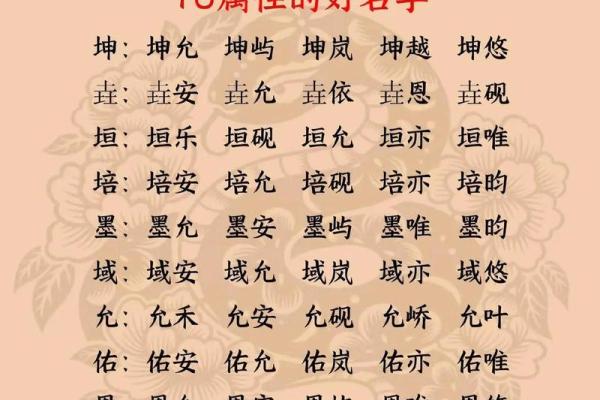 属性的好名字
坤：坤允 坤屿 坤岚 坤越 坤悠
垚：垚安 垚允 垚依 垚恩 垚砚
垣：垣乐 垣砚 垣允 垣亦 垣唯
培：培安 培允 培砚 培亦 培昀
墨：墨允 墨安 墨屿 墨唯 墨昀
域：域安 域允 域岚 域亦 域悠
允：允禾 允安 允砚 允峤 允叶
佑：佑安 佑允 佑岚 佑亦 佑唯